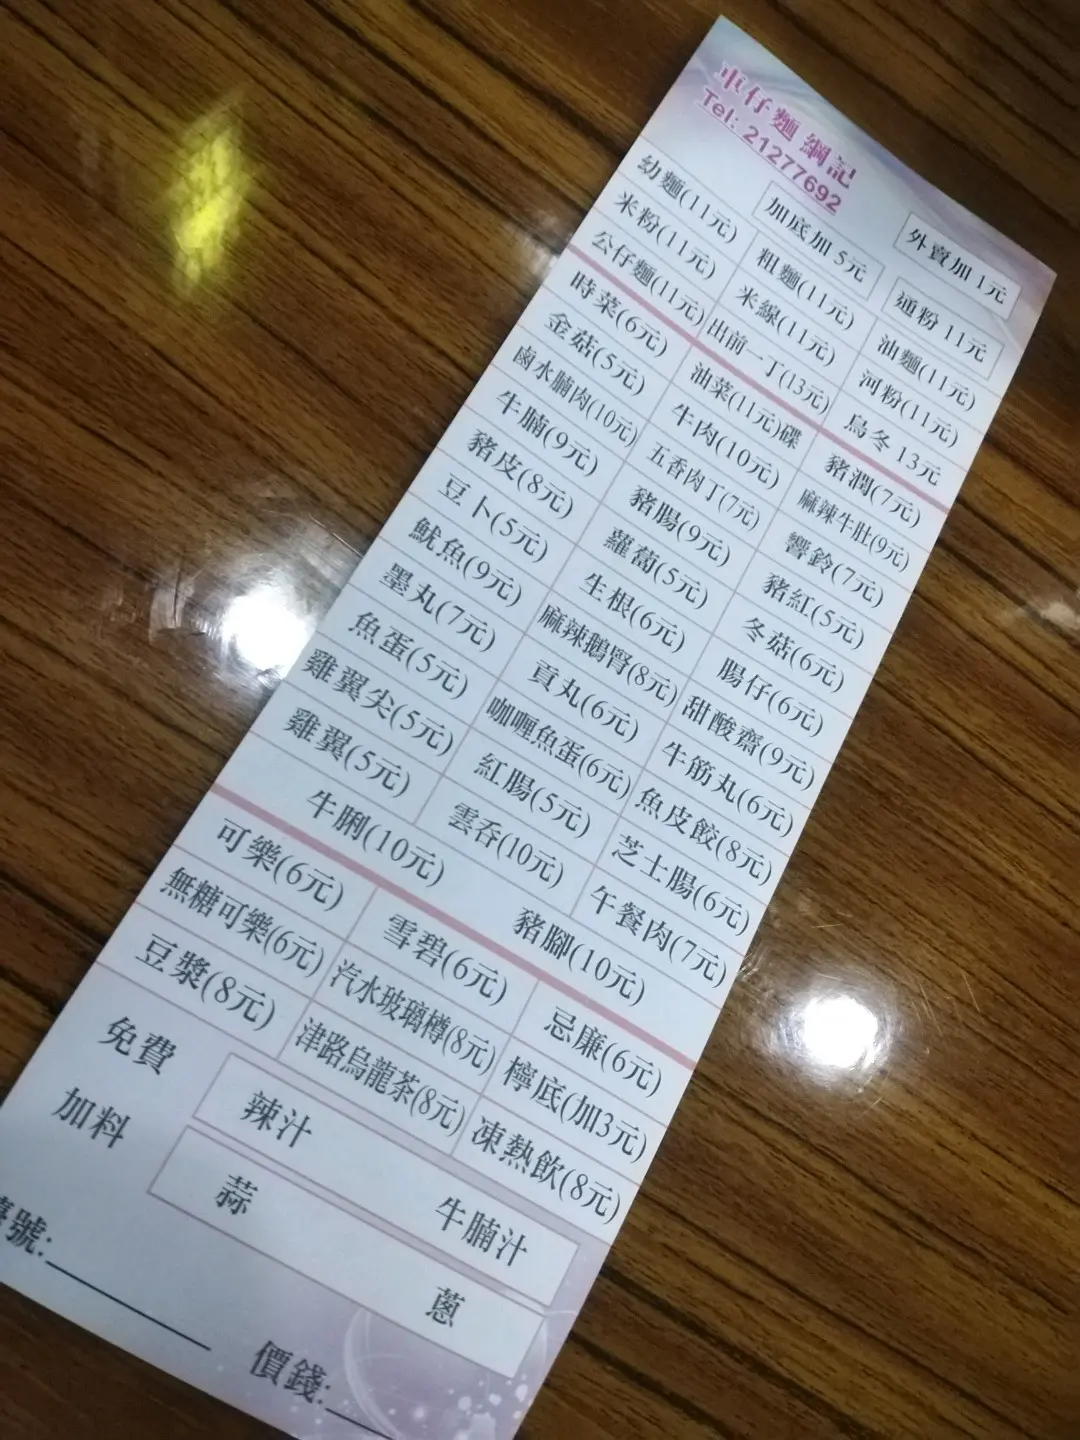 車仔麵 綱記
Tel: 21277692
加底加 5元 外賣加 1元
幼麵(11元) 粗麵(11元) 通粉 11元
米粉(11元) 米線(11元) 油麵(11元)
公仔麵(11元) 出前一丁(13元) 河粉(11元)
烏冬 13元
時菜(6元) 油菜(11元)碟 豬潤(7元)
金菇(5元) 牛肉(10元) 麻辣牛肚(9元)
鹵水腩肉(10元) 五香肉丁(7元) 響鈴(7元)
牛腩(9元) 豬腸(9元) 豬紅(5元)
豬皮(8元) 蘿蔔(5元) 冬菇(6元)
豆卜(5元) 生根(6元) 腸仔(6元)
魷魚(9元) 麻辣鵝腎(8元) 甜酸齋(9元)
墨丸(7元) 貢丸(6元) 牛筋丸(6元)
魚蛋(5元) 咖喱魚蛋(6元) 魚皮餃(8元)
雞翼尖(5元) 紅腸(5元) 芝士腸(6元)
雞翼(5元) 雲吞(10元) 午餐肉(7元)
牛脷(10元) 豬腳(10元)
可樂(6元) 雪碧(6元) 忌廉(6元)
無糖可樂(6元) 汽水玻璃樽(8元) 檸底(加3元)
豆漿(8元) 津路烏龍茶(8元) 凍熱飲(8元)
免費 辣汁 牛腩汁
加料 蒜 蔥
號:
價錢: